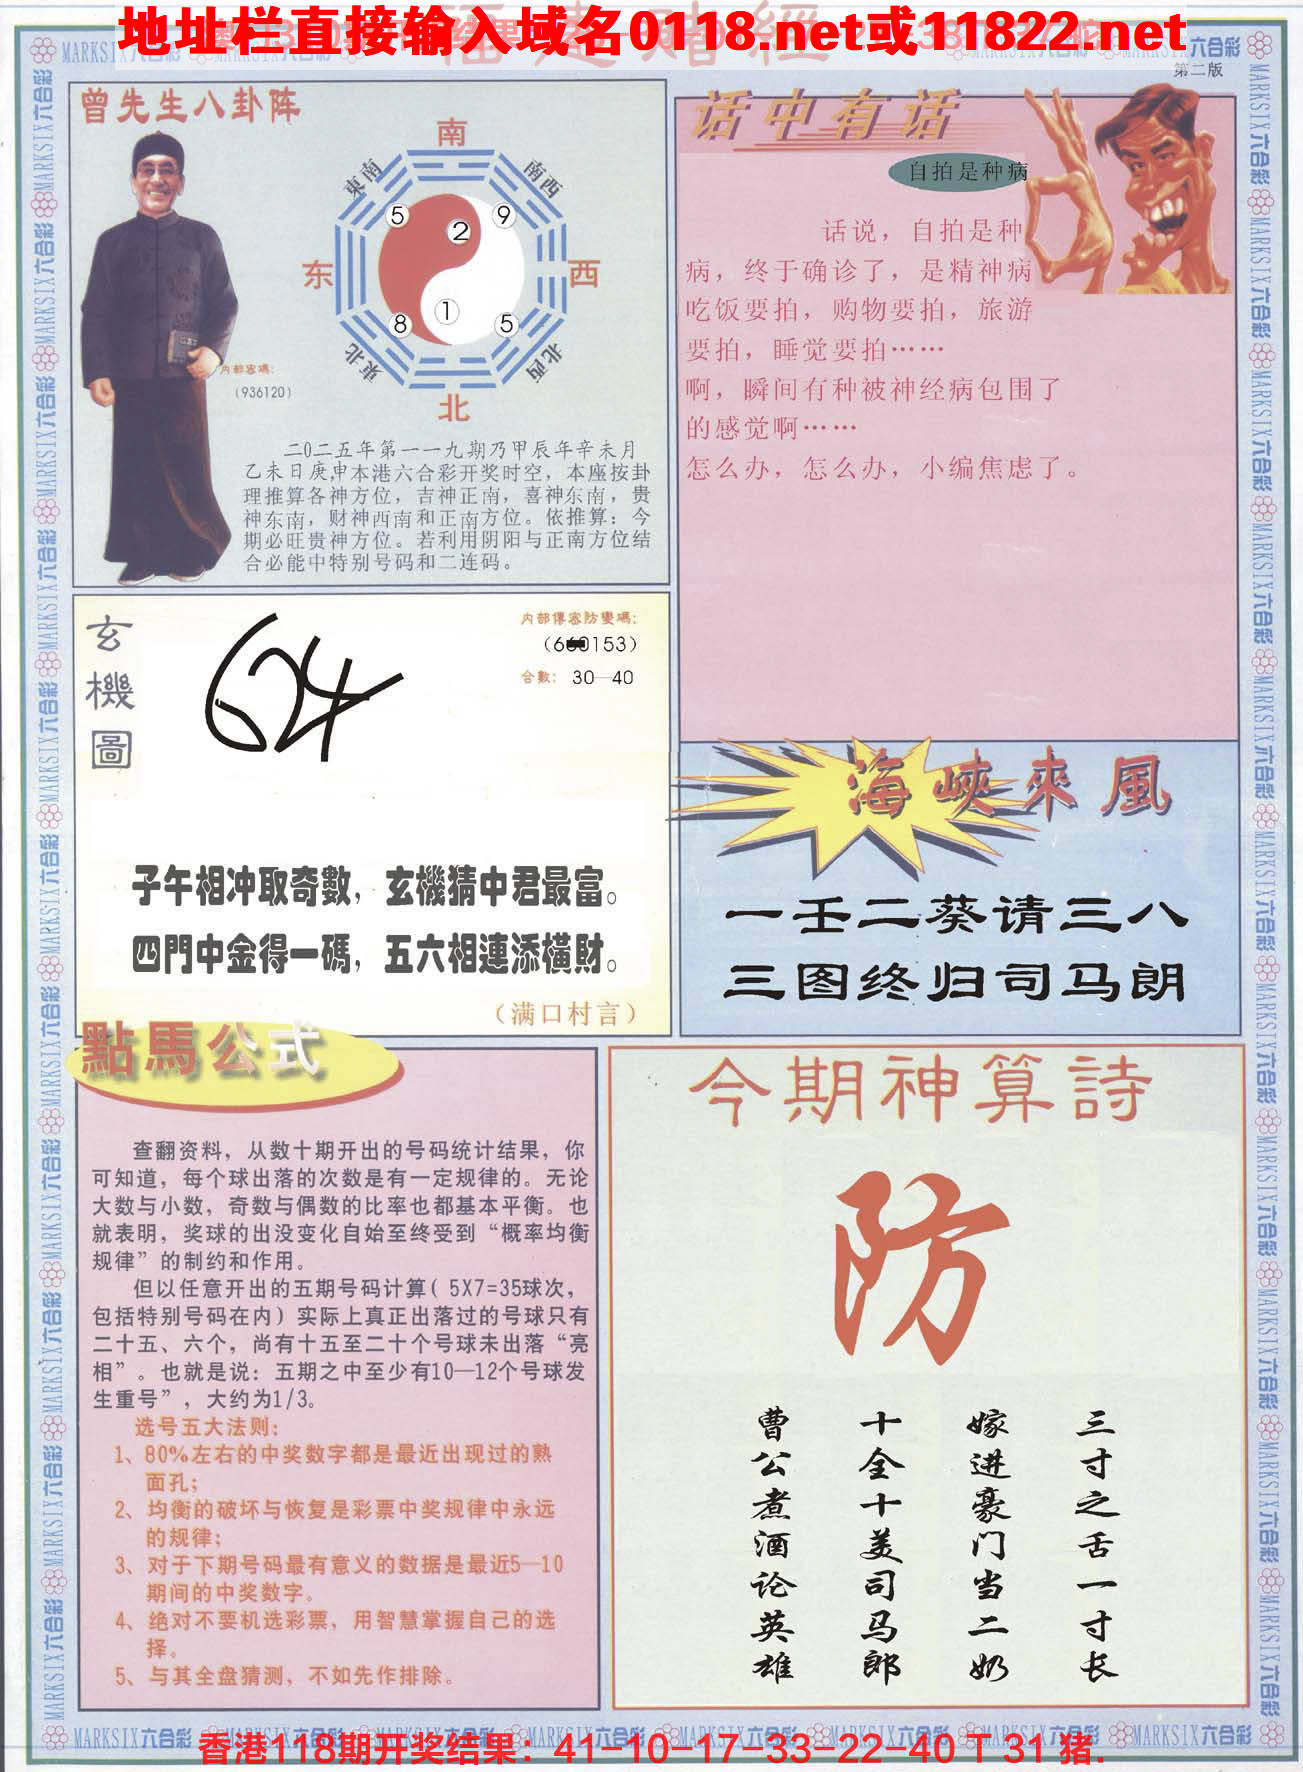 地址栏直接输入域名0118.net或11822.net
第二版
曾先生八卦阵
南
東南
南西
5
9
2
东
西
1
8
5
東北
北西
北
内部密碼:
(936120)
二0二五年第一一九期乃甲辰年辛未月
乙未日庚申本港六合彩开奖时空，本座按卦
理推算各神方位，吉神正南，喜神东南，贵
神东南，财神西南和正南方位。依推算：今
期必旺贵神方位。若利用阴阳与正南方位结
合必能中特别号码和二连码。
话中有话
自拍是种病
话说，自拍是种
病，终于确诊了，是精神病
吃饭要拍，购物要拍，旅游
要拍，睡觉要拍……
啊，瞬间有种被神经病包围了
的感觉啊……
怎么办，怎么办，小编焦虑了。
玄機圖
内部傳密防變碼:
合數: 30—40
子午相冲取奇數，玄機猜中君最富。
四門中金得一碼，五六相連添橫財。
（满口村言）
海峽來風
一壬二葵请三八
三图终归司马朗
點馬公式
查翻资料，从数十期开出的号码统计结果，你
可知道，每个球出落的次数是有一定规律的。无论
大数与小数，奇数与偶数的比率也都基本平衡。也
就表明，奖球的出没变化自始至终受到“概率均衡
规律”的制约和作用。
但以任意开出的五期号码计算( 5X7=35球次，
包括特别号码在内）实际上真正出落过的号球只有
二十五、六个，尚有十五至二十个号球未出落“亮
相”。也就是说：五期之中至少有10—12个号球发
生重号”，大约为1/3。
选号五大法则:
1、80%左右的中奖数字都是最近出现过的熟
面孔;
2、均衡的破坏与恢复是彩票中奖规律中永远
的规律;
3、对于下期号码最有意义的数据是最近5—10
期间的中奖数字。
4、绝对不要机选彩票，用智慧掌握自己的选
择。
5、与其全盘猜测，不如先作排除。
今期神算詩
防
三寸之舌一寸长
嫁进豪门当二奶
十全十美司马郎
曹公煮酒论英雄
MARKSIX六合彩
香港118期开奖结果：41-10-17-33-22-40 T 31 猪.